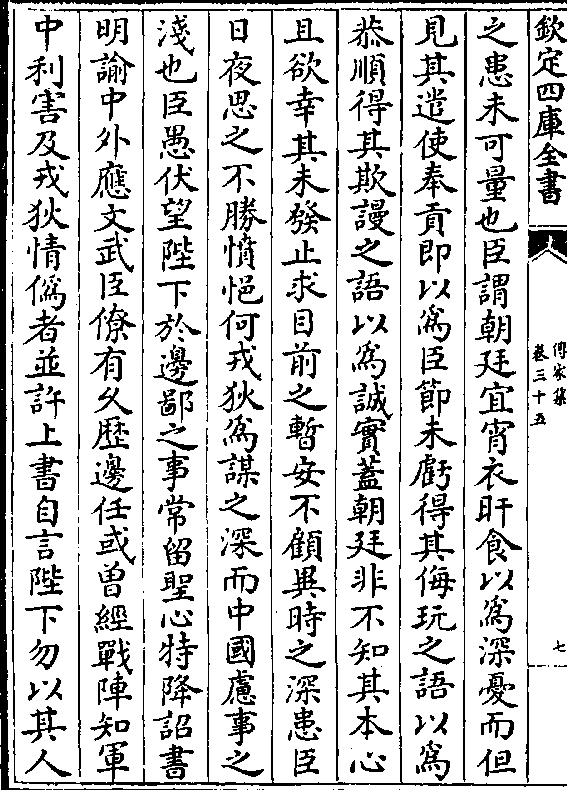 欽定四庫全書
傳家集
卷三十五
七
之患未可量也臣謂朝廷宜宵衣旰食以為深憂而但
見其遣使奉貢即以為臣節未虧得其侮玩之語以為
恭順得其欺謾之語以為誠實蓋朝廷非不知其本心
且欲幸其未發止求目前之暫安不顧異時之深患臣
日夜思之不勝憤悒何戎狄為謀之深而中國慮事之
淺也臣愚伏望陛下於邊鄙之事常留聖心特降詔書
明諭中外應文武臣僚有久歴邊任或曾經戰陣知軍
中利害及戎狄情偽者並許上書自言陛下勿以其人